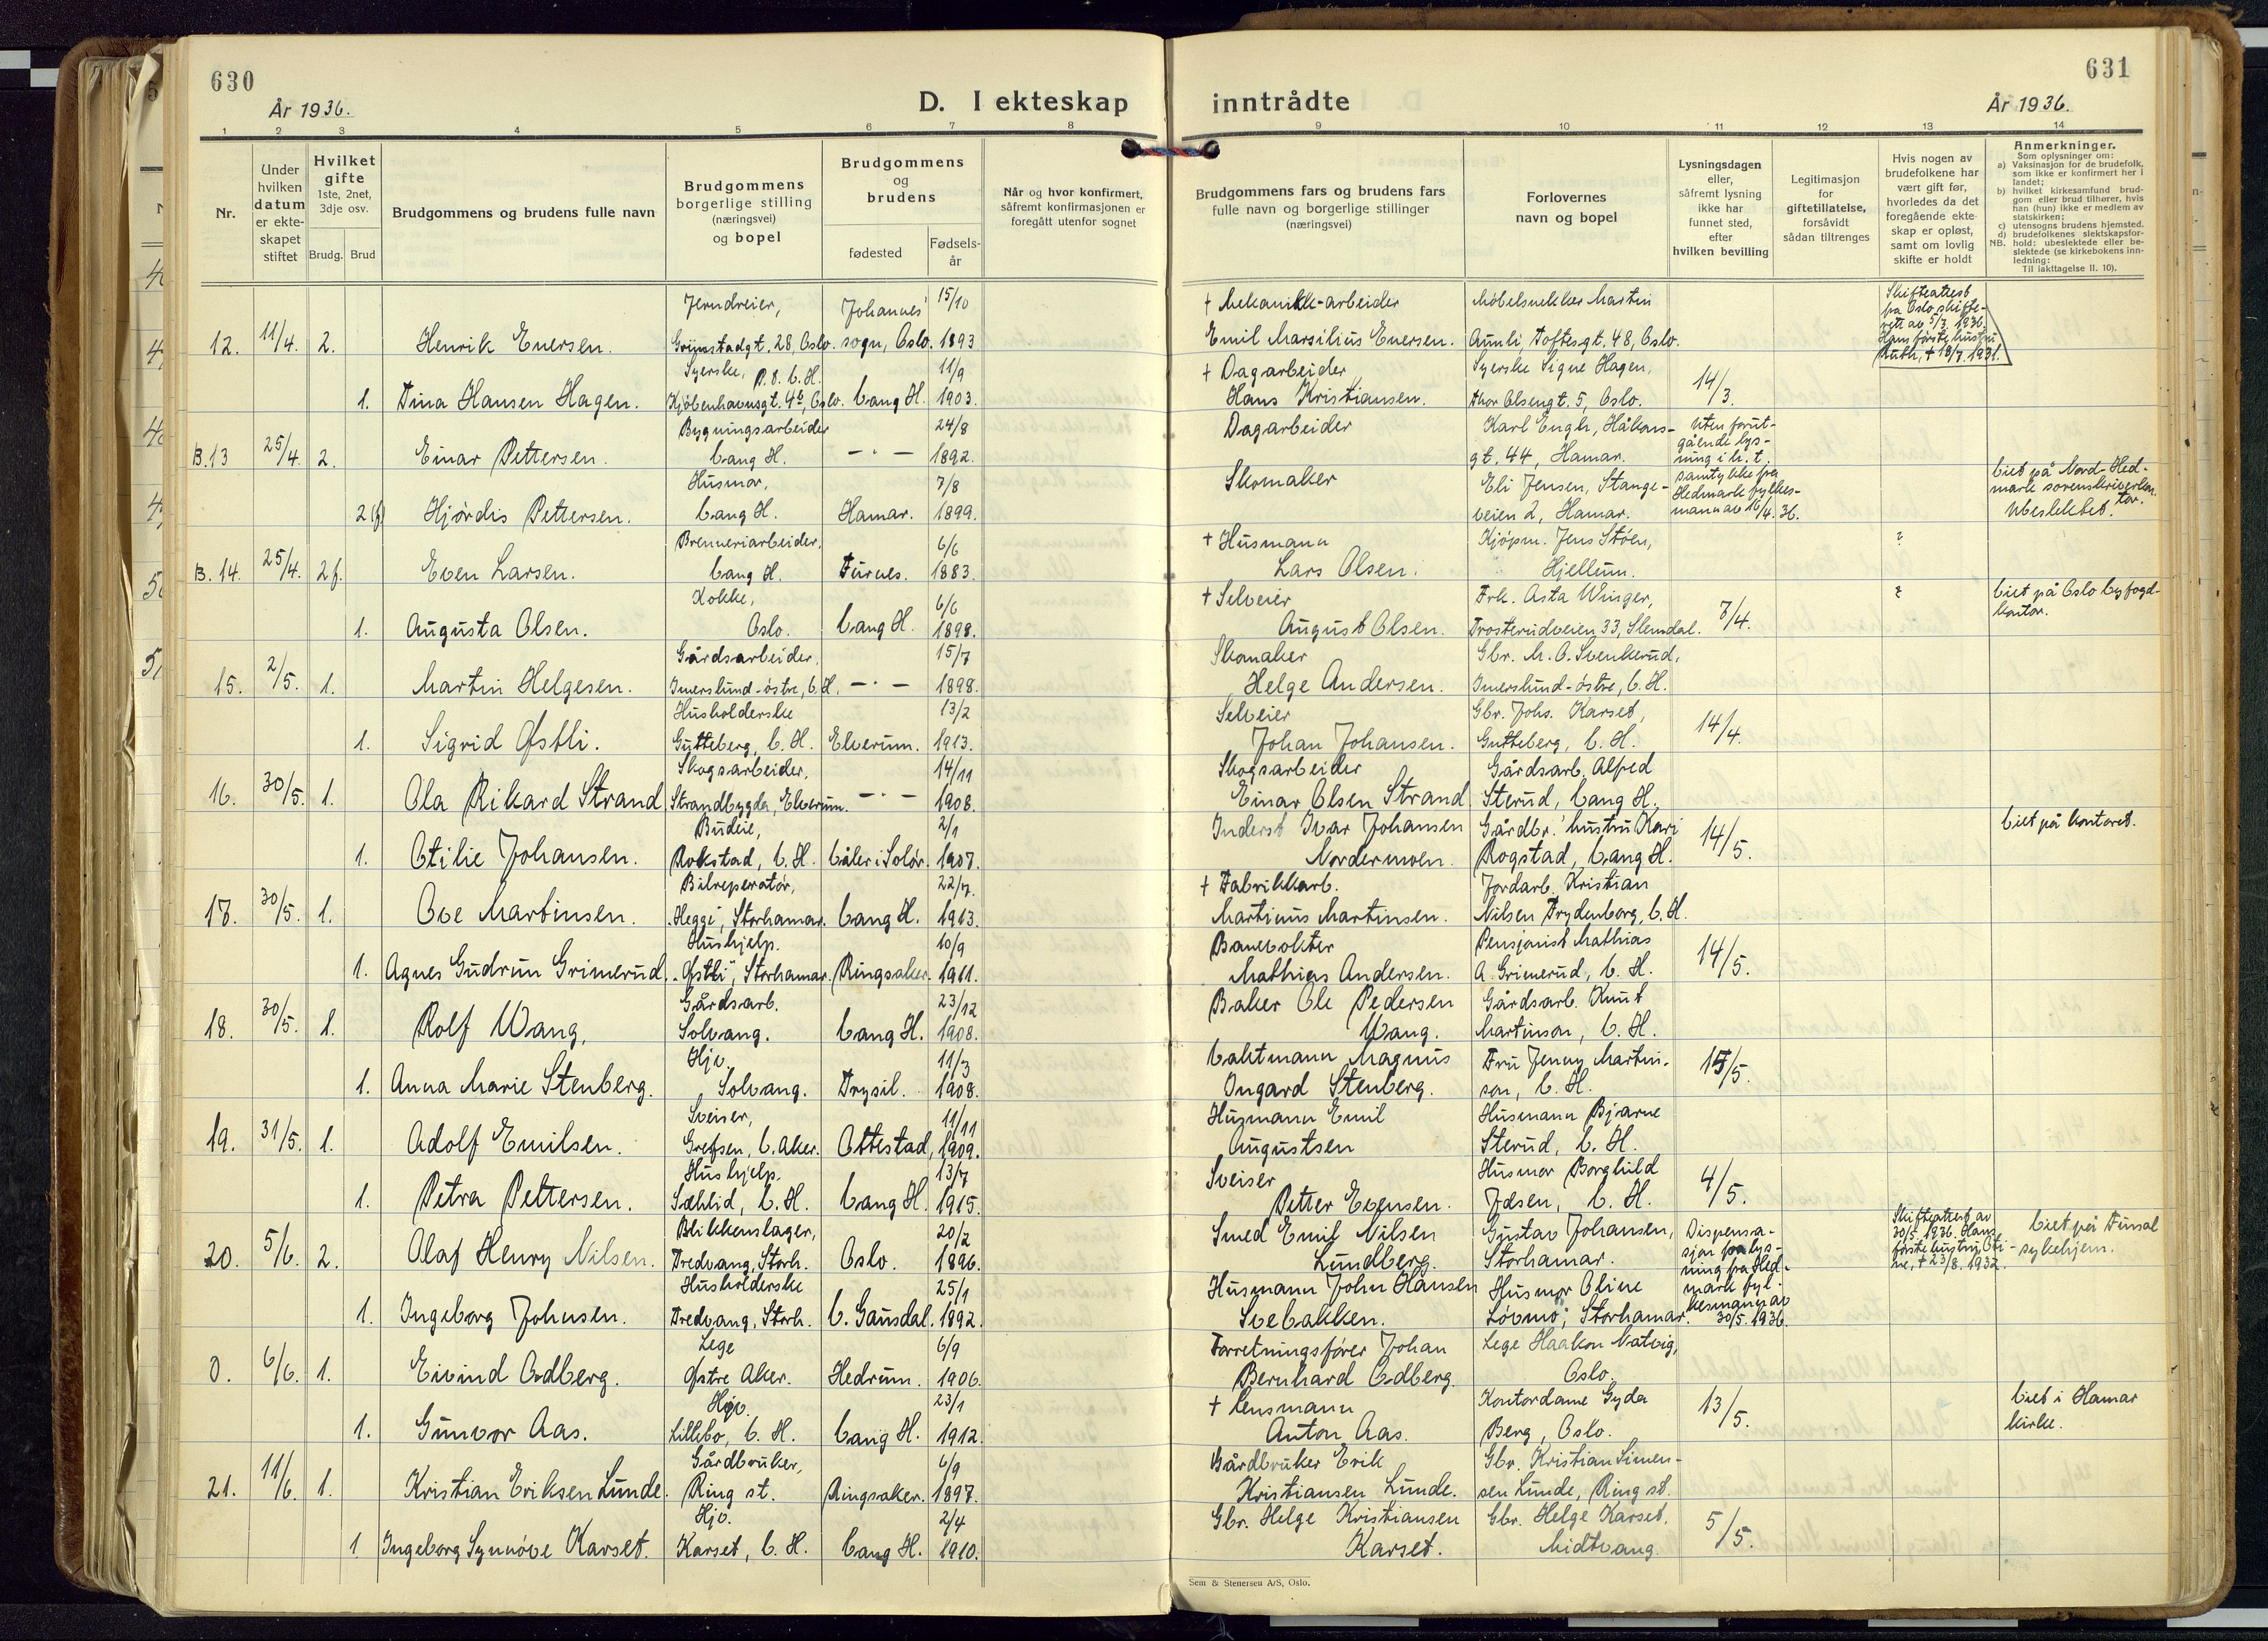 630
År 1936.
D. I ekteskap
1 2 3 4 5 6 7 8
Nr.
Under hvilken datum er ekte-skapet stiftet
Hvilket gifte
1ste, 2net, 3dje osv.
Brudg. Brud
Brudgommens og brudens fulle navn
Brudgommens borgerlige stilling (næringsvei) og bopel
Brudgommens og brudens
fødested
Fødsels-år
Når og hvor konfirmert, såfremt konfirmasjonen er foregått utenfor sognet
Jerndreier, Johannes' 15/10
12. 11/4. 2. Henrik Eversen. Grimstadgt. 28, Oslo. sogn, Oslo. 1893
Syerske, P.t. V. H. 11/9
1. Dina Hansen Hagen. Kjøbenhavnsgt. 4b, Oslo. Vang H. 1903.
Bygningsarbeider 24/8
B.13 25/4. 2. Einar Pettersen. Vang H. —„— 1892.
Husmor, 7/8
2(f) Hjørdis Pettersen. Vang H. Hamar. 1899.
Brenneriarbeider, 6/6
B. 14. 25/4. 2f. Even Larsen. Vang H. Furnes. 1883.
Kokke, 6/6
1. Augusta Olsen. Oslo. Vang H. 1898.
Gårdsarbeider, 15/7
15. 2/5. 1. Martin Helgesen. Imerslund-østre, V. H. —„— 1898.
Husholderske 13/2
1. Sigrid Østli. Gutteberg, V. H. Elverum. 1913.
Skogsarbeider, 14/11
16. 30/5. 1. Ola Rikard Strand Strandbygda, Elverum. —„— 1908.
Budeie, 2/1
1. Otilie Johansen. Rokstad, V. H. Våler i Solør. 1907.
Bilreperatør, 22/7.
17. 30/5. 1. Ove Martinsen. „Heggi", Storhamar. Vang H. 1913.
Hushjelp. 10/9
1. Agnes Gudrun Grimerud. „Østli", Storhamar. Ringsaker. 1911.
Gårdsarb. 23/12
18. 30/5. 1. Rolf Wang, Solvang. Vang H. 1908.
Hjv. 11/3
1. Anna Marie Stenberg. Solvang. Trysil. 1908.
Sveiser, 11/11
19. 31/5. 1. Adolf Emilsen. Grefsen, V. Aker. Ottestad, 1909.
Hushjelp. 13/7
1. Petra Pettersen. Sæhlid, V. H. Vang H. 1915.
Blikkenslager, 20/2
20. 5/6. 2. Olaf Henry Nilsen. Fredvang, Storh. Oslo. 1896.
Husholderske 25/1
1. Ingeborg Johnsen. Fredvang, Storh. V. Gausdal. 1892.
Lege 6/9
0. 6/6. 1. Eivind Odberg. Østre Aker. Hedrum. 1906.
Hjv. 23/1
1. Gunvor Aas. Lillebo, V. H. Vang H. 1912.
Gårdbruker, 6/9
21. 11/6. 1. Kristian Eriksen Lunde. Ring st. Ringsaker. 1897.
Hjv. 2/4
1 Ingeborg Synnøve Karset. Karset, V. H. Vang H. 1910.
631
inntrådte
År 1936.
9 10 11 12 13 14
Brudgommens fars og brudens fars fulle navn og borgerlige stillinger (næringsvei)
Forlovernes navn og bopel
Lysningsdagen eller, såfremt lysning ikke har funnet sted, efter hvilken bevilling
Legitimasjon for giftetillatelse, forsåvidt sådan tiltrenges
Hvis nogen av brudefolkene har vært gift før, hvorledes da det foregående ekte-skap er opløst, samt om lovlig skifte er holdt
Anmerkninger.
Som oplysninger om:
a) Vaksinasjon for de brudefolk, som ikke er konfirmert her i landet;
b) hvilket kirkesamfund brud-gom eller brud tilhører, hvis han (hun) ikke er medlem av statskirken;
c) utensogns brudens hjemsted.
d) brudefolkenes slektskapsfor-
NB. hold: ubeslektede eller be-slektede (se kirkebokens inn-ledning:
Til iakttagelse II. 10).
† Mekanikk-arbeider Møbelsnekker Martin
Skifteattest fra Oslo skifte-rett av 5/3. 1936. Hans første hustru Ruth, † 18/7. 1931.
Emil Marsilius Eversen. Aunli, Toftesgt. 48, Oslo.
† Dagarbeider Syerske Signe Hagen,
Hans Kristiansen. Thor Olsengt. 5, Oslo. 14/3.
Dagarbeider Karl Engh, Håkons-
gt. 44, Hamar.
Uten forut-gående lys-ning i h. t. samtykke fra Hedmark fylkes-mann av 16/4. 36.
Skomaker Eli Jensen, Stange-
veien 2, Hamar.
Viet på Nord-Hed-mark sorenskriverkon-tor. Ubeslektet.
† Husmann Kjøpm. Jens Støen, ?
Lars Olsen. Hjellum.
† Selveier Frk. Asta Winger, ? Viet på Oslo byfogd-kontor.
August Olsen. Trosterudveien 33, Slemdal. 7/4.
Skomaker Gbr. M. O. Svenkerud,
Helge Andersen. Imerslund-østre, V. H.
Selveier Gbr. Johs. Karset,
Johan Johansen. Gutteberg, V. H. 14/4.
Skogsarbeider Gårdsarb. Alfred
Einar Olsen Strand Sterud, Vang H.
Inderst Ivar Johansen Gårdbr. hustru Kari Viet på kontoret.
Nordermoen. Rogstad, Vang H. 14/5.
† Fabrikkarb. Jordarb. Kristian
Martinus Martinsen. Nilsen Frydenborg, V. H.
Banevokter Pensjonist Mathias
Mathias Andersen. A. Grimerud, V. H. 14/5.
Baker Ole Pedersen Gårdsarb. Knut
Wang. Martinson, V. H.
Vaktmann Magnus Fru Jenny Martin-
Ingard Stenberg. son, V. H. 15/5.
Husmann Emil Husmann Bjarne
Augustsen Sterud, V. H.
Sveiser Husmor Borghild
Petter Evensen. Idsen, V. H. 4/5.
Smed Emil Nilsen Gustav Johansen,
Lundberg. Storhamar.
Dispensa-sjon fra lys-ning fra Hed-mark fyl-kesmann av 30/5. 1936.
Skifteattest av 30/5. 1936. Hans første hustru, Oti-ne, † 23/8. 1932.
Viet på Furnsal sykehjem.
Husmann John Hansen Husmor Oline
Svebakken. Løvmo, Storhamar.
Forretningsfører Johan Lege Haakon Natvig,
Bernhard Odberg. Oslo.
† Lensmann Kontordame Gyda Viet i Hamar kirke.
Anton Aas. Berg, Oslo. 13/5.
Gårdbruker Erik Gbr. Kristian Simen-
Kristiansen Lunde. sen Lunde, Ring st.
Gbr. Helge Kristiansen Gbr. Helge Karset,
Karset. Midtvang. 5/5.
Sem & Stenersen A/S, Oslo.